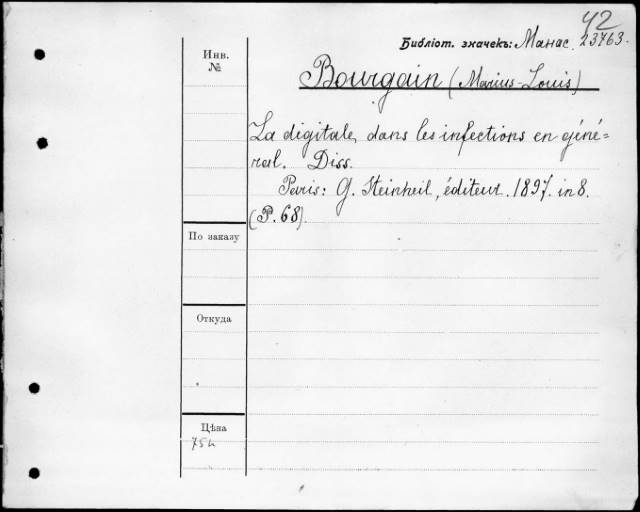 42
Библіот. значекъ: Манас. 23763.
Инв.
№
Bourgain (Marius-Louis)
La digitale, dans les infections en géné=
ral. Diss.
Paris: G. Steinheil, éditeur. 1897. in 8.
(P. 68).
По заказу
Откуда
Цѣна
75к